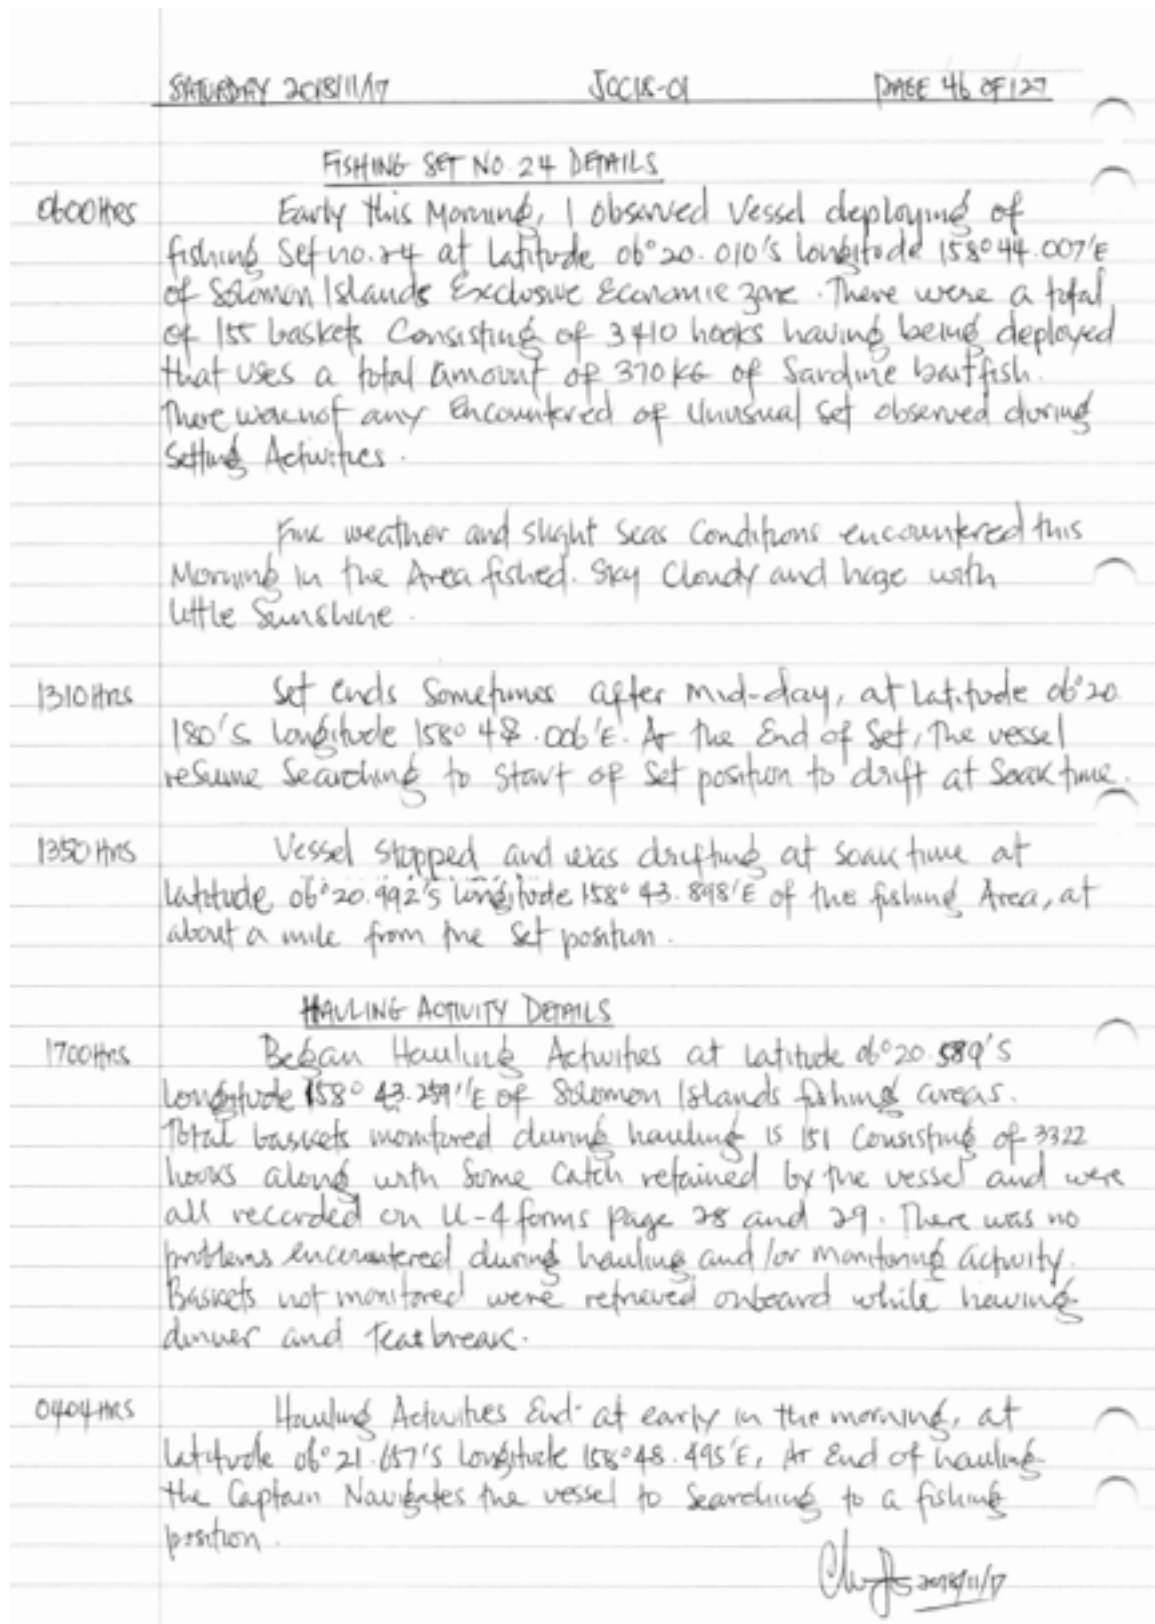 SATURDAY 2018/11/17 JCC18-01 PAGE 46 OF 127
FISHING SET NO. 24 DETAILS
0600Hrs Early this Morning, I observed Vessel deploying of
fishing Set no. 24 at Latitude 06°20.010's Longitude 158°44.007'E
of Solomon Islands Exclusive Economic zone. There were a total
of 155 baskets Consisting of 3410 hooks having being deployed
that uses a total amount of 370 KG of Sardine baitfish.
There were not any Encountered of Unusual Set observed during
Setting Activities.
Fine weather and slight Seas Conditions encountered this
Morning in the Area fished. Sky Cloudy and haze with
little Sunshine.
1310Hrs Set ends Sometimes after mid-day, at Latitude 06°20.
180's Longitude 158°48.006'E. At the End of Set, the vessel
resume Searching to Start of Set position to drift at Soak time.
1350Hrs Vessel stopped and was drifting at soak time at
latitude 06°20.992's Longitude 158°43.898'E of the fishing Area, at
about a mile from the Set position.
HAULING ACTIVITY DETAILS
1700Hrs Began Hauling Activities at Latitude 06°20.589's
Longitude 158°43.259''E of Solomon Islands fishing areas.
Total baskets monitored during hauling is 151 Consisting of 3322
hooks along with Some Catch retained by the vessel and were
all recorded on LL-4 forms page 28 and 29. There was no
problems encountered during hauling and/or monitoring activity.
Baskets not monitored were retrieved onboard while having
dinner and Tea break.
0404HRS Hauling Activities End at early in the morning, at
Latitude 06°21.657's Longitude 158°48.495'E, At End of hauling
the Captain Navigates the vessel to Searching to a fishing
position.
2018/11/17